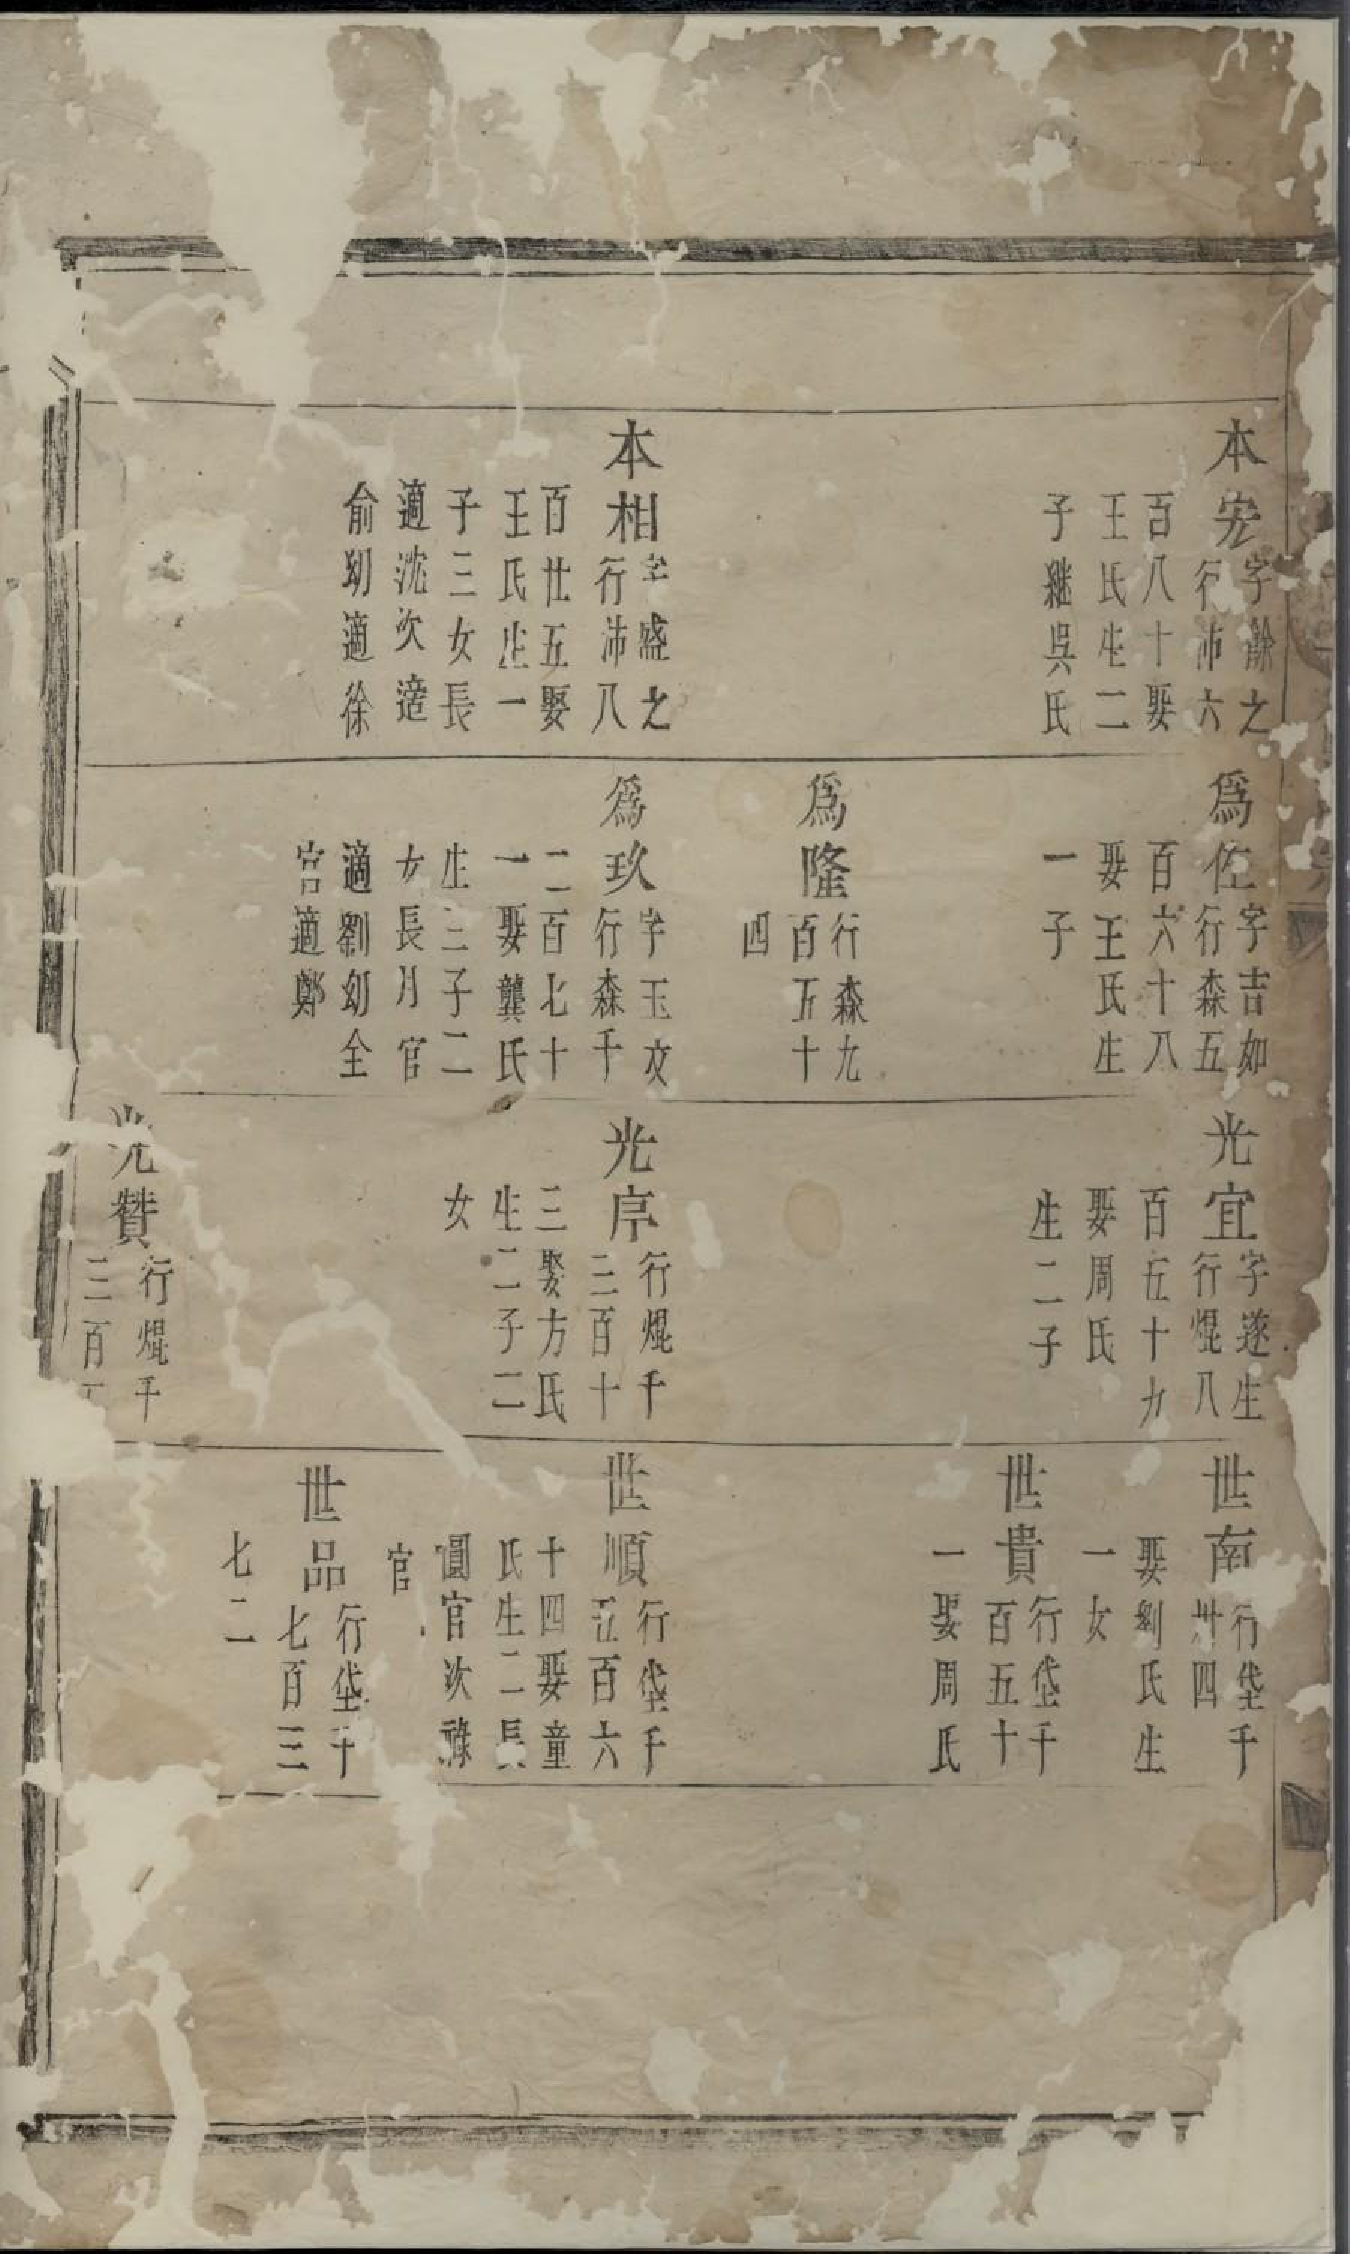 本安
字餘之
行沛六
百八十娶
王氏生二
子繼吳氏
本相
字盛之
行沛八
百廿五娶
王氏生一
子三女長
適沈次適
俞幼適徐
爲佐
字吉如
行森五
百六十八
娶王氏生
一子
爲隆
行森九
百五十
四
爲玖
字玉文
行森千
二百七十
一娶龔氏
生三子二
女長月官
適劉幼全
官適鄭
光宜
字遂生
行焜八
百五十九
娶周氏
生二子
光序
行焜千
三百十
三娶方氏
生二子二
女
光贊
行焜千
三百
世南
行垈千
卅四
娶劉氏生
一女
世貴
行垈千
百五十
一娶周氏
世順
行垈千
五百六
十四娶童
氏生二長
圓官次祿
官
世品
行垈千
七百三
七二